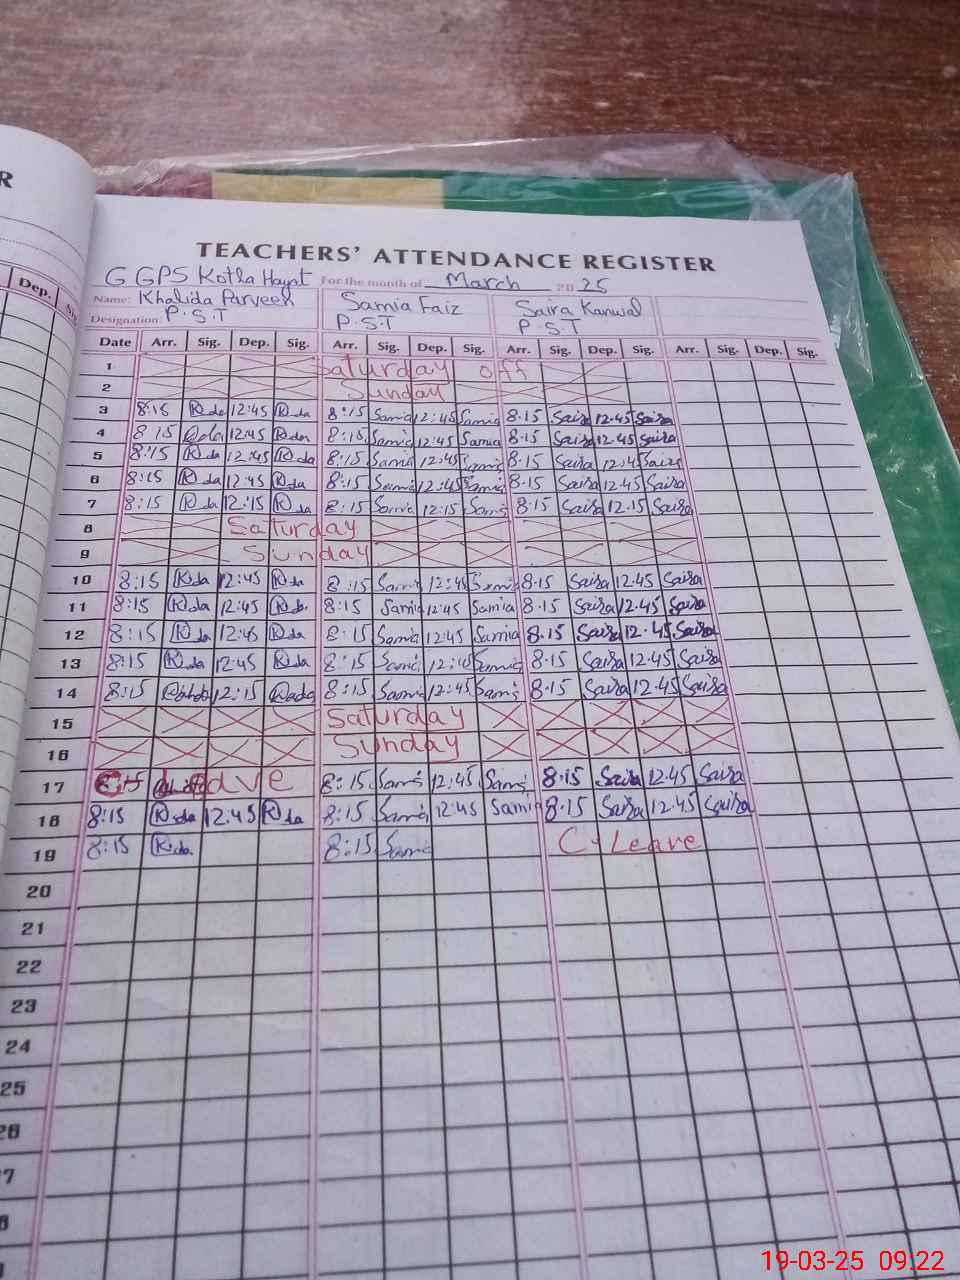 R
Dep.
TEACHERS' ATTENDANCE REGISTER
G GPS Kotla Hayat For the month of March 20 25
Name: Khalida Parveen Samia Faiz Saira Kanwal
Designation: P.S.T P.S.T P.S.T
Date Arr. Sig. Dep. Sig. Arr. Sig. Dep. Sig. Arr. Sig. Dep. Sig. Arr. Sig. Dep. Sig.
1 Saturday off
2 Sunday
3 8:15 K da 12:45 K da 8:15 Samia 12:45 Samia 8.15 Saira 12.45 Saira
4 8:15 12:45 K da 8:15 Samia 12:45 Samia 8.15 Saira 12.45 Saira
5 8:15 K da 12:45 K da 8:15 Samia 12:45 Samia 8.15 Saira 12:4 Saira
6 8:15 K da 12:45 K da 8:15 Samia 12:45 Samia 8.15 Saira 12.45 Saira
7 8:15 K da 12:15 K da 8:15 Samia 12:15 Samia 8.15 Saira 12.15 Saira
8 Saturday
9 Sunday
10 8:15 K da 12:45 K da 8:15 Samia 12:45 Samia 8.15 Saira 12.45 Saira
11 8:15 K da 12:45 K da 8:15 Samia 12:45 Samia 8.15 Saira 12.45 Saira
12 8:15 K da 12:45 K da 8:15 Samia 12:45 Samia 8.15 Saira 12.45 Saira
13 8:15 K da 12:45 K da 8:15 Samia 12:45 Samia 8.15 Saira 12.45 Saira
14 8:15 12:15 8:15 Samia 12:45 Samia 8.15 Saira 12.45 Saira
15 Saturday
16 Sunday
17 8:15 Samia 12:45 Samia 8.15 Saira 12.45 Saira
18 8:15 K da 12:45 K da 8:15 Samia 12:45 Samia 8.15 Saira 12.45 Saira
19 8:15 K da 8:15 Samia C. Leave
20
21
22
23
24
25
26
19-03-25 09.22